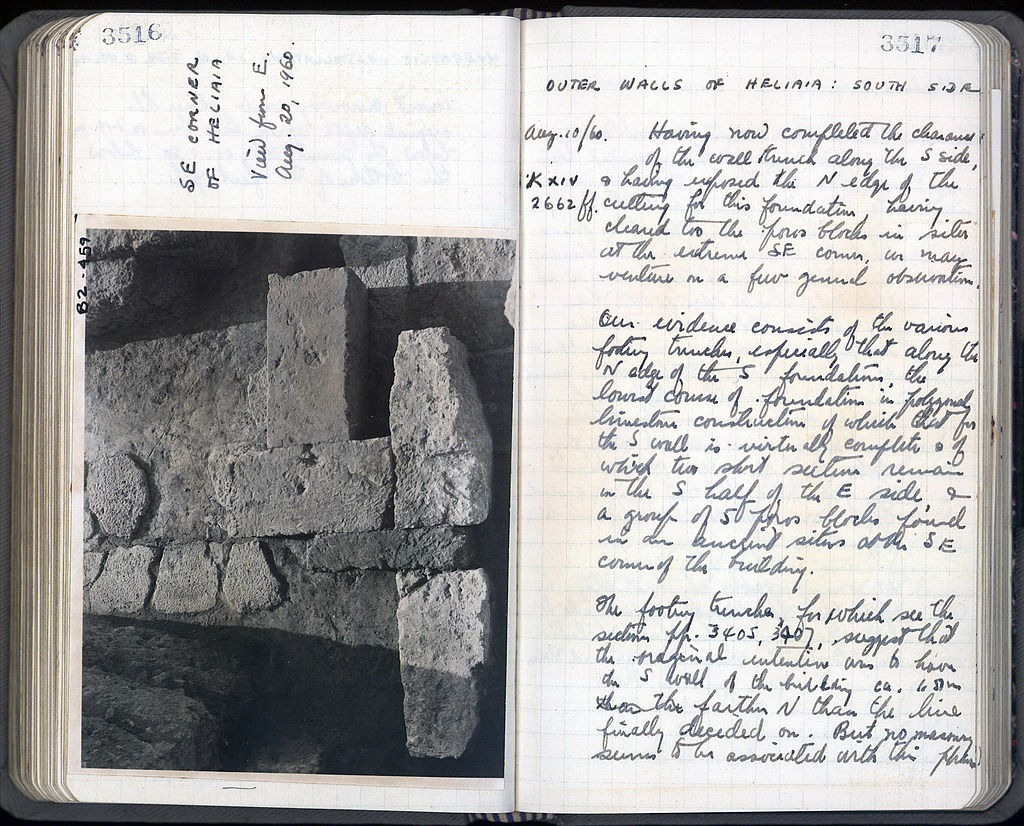 3516
SE CORNER
OF HELIAIA
View from E.
Aug. 20, 1960.
82-459
3517
OUTER WALLS OF HELIAIA: SOUTH SIDE
Aug. 10/60. Having now completed the clearance
of the wall trench along the S side,
K XIV & having exposed the N edge of the
2662 ff. cutting for this foundation, having
cleared too the poros blocks in situ
at the extreme SE corner, we may
venture on a few general observations.
Our evidence consists of the various
footing trenches, especially that along the
N edge of the S foundation, the
lowest course of foundation in polygonal
limestone construction of which that for
the S wall is virtually complete & of
which two short sections remain
in the S half of the E side, &
a group of 5 poros blocks found
in an ancient situs at the SE
corner of the building.
The footing trenches, for which see the
sections pp. 3405, 3407, suggest that
the original intention was to have
the S wall of the building ca.
the farther N than the line
finally decided on. But no masonry
seems to be associated with this